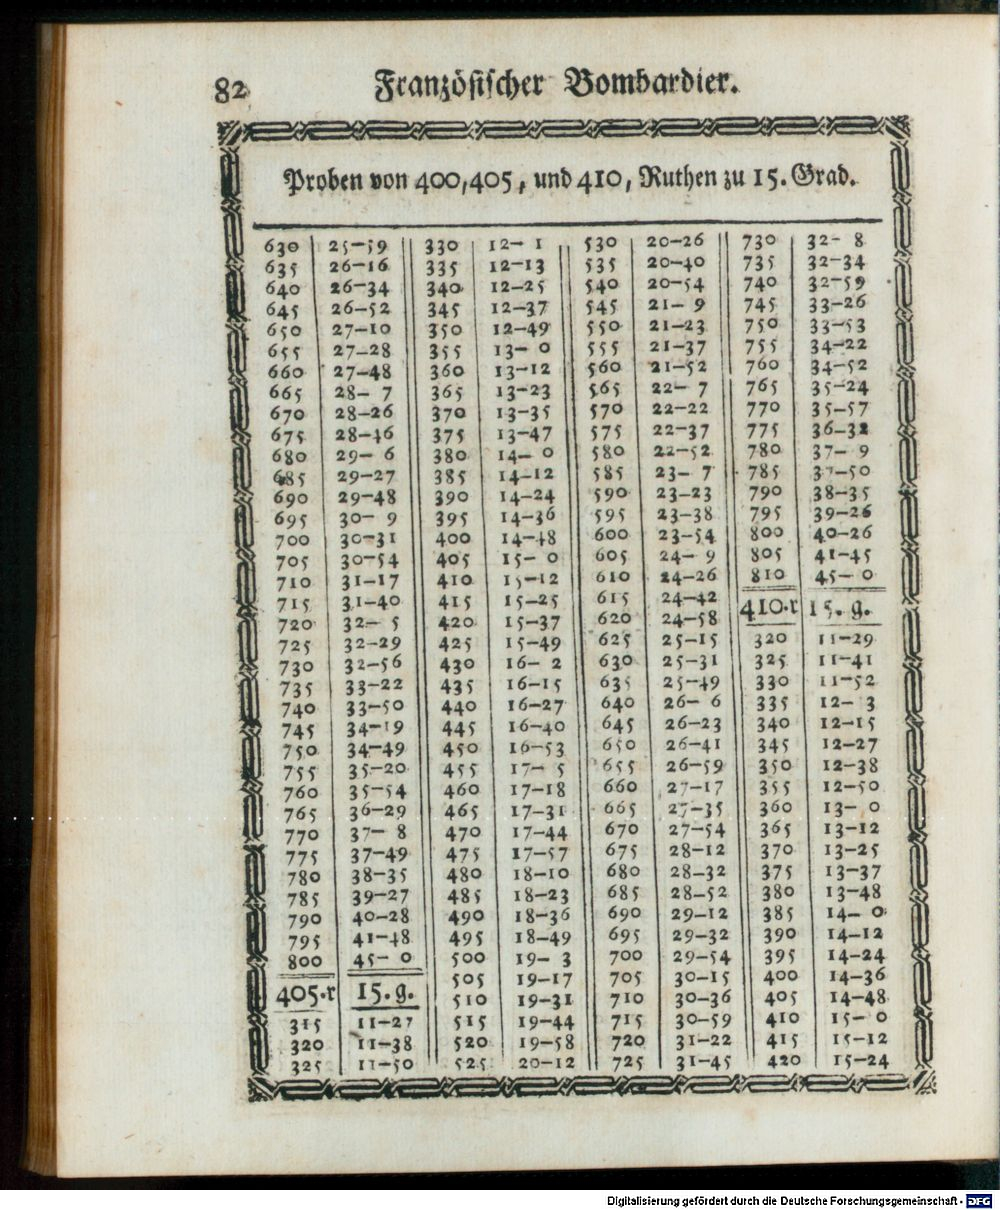 82 Französischer Bombardier.
Proben von 400, 405, und 410, Ruthen zu 15. Grad.
630 25–59
635 26–16
640 26–34
645 26–52
650 27–10
655 27–28
660 27–48
665 28– 7
670 28–26
675 28–46
680 29– 6
685 29–27
690 29–48
695 30– 9
700 30–31
705 30–54
710 31–17
715 31–40
720 32– 5
725 32–29
730 32–56
735 33–22
740 33–50
745 34–19
750 34–49
755 35–20
760 35–54
765 36–29
770 37– 8
775 37–49
780 38–35
785 39–27
790 40–28
795 41–48
800 45– 0
405.r 15.g.
315 11–27
320 11–38
325 11–50
330 12– 1
335 12–13
340 12–25
345 12–37
350 12–49
355 13– 0
360 13–12
365 13–23
370 13–35
375 13–47
380 14– 0
385 14–12
390 14–24
395 14–36
400 14–48
405 15– 0
410 15–12
415 15–25
420 15–37
425 15–49
430 16– 2
435 16–15
440 16–27
445 16–40
450 16–53
455 17– 5
460 17–18
465 17–31
470 17–44
475 17–57
480 18–10
485 18–23
490 18–36
495 18–49
500 19– 3
505 19–17
510 19–31
515 19–44
520 19–58
525 20–12
530 20–26
535 20–40
540 20–54
545 21– 9
550 21–23
555 21–37
560 21–52
565 22– 7
570 22–22
575 22–37
580 22–52
585 23– 7
590 23–23
595 23–38
600 23–54
605 24– 9
610 24–26
615 24–42
620 24–58
625 25–15
630 25–31
635 25–49
640 26– 6
645 26–23
650 26–41
655 26–59
660 27–17
665 27–35
670 27–54
675 28–12
680 28–32
685 28–52
690 29–12
695 29–32
700 29–54
705 30–15
710 30–36
715 30–59
720 31–22
725 31–45
730 32– 8
735 32–34
740 32–59
745 33–26
750 33–53
755 34–22
760 34–52
765 35–24
770 35–57
775 36–32
780 37– 9
785 37–50
790 38–35
795 39–26
800 40–26
805 41–45
810 45– 0
410.r 15. g.
320 11–29
325 11–41
330 11–52
335 12– 3
340 12–15
345 12–27
350 12–38
355 12–50
360 13– 0
365 13–12
370 13–25
375 13–37
380 13–48
385 14– 0
390 14–12
395 14–24
400 14–36
405 14–48
410 15– 0
415 15–12
420 15–24
Digitalisierung gefördert durch die Deutsche Forschungsgemeinschaft - DFG